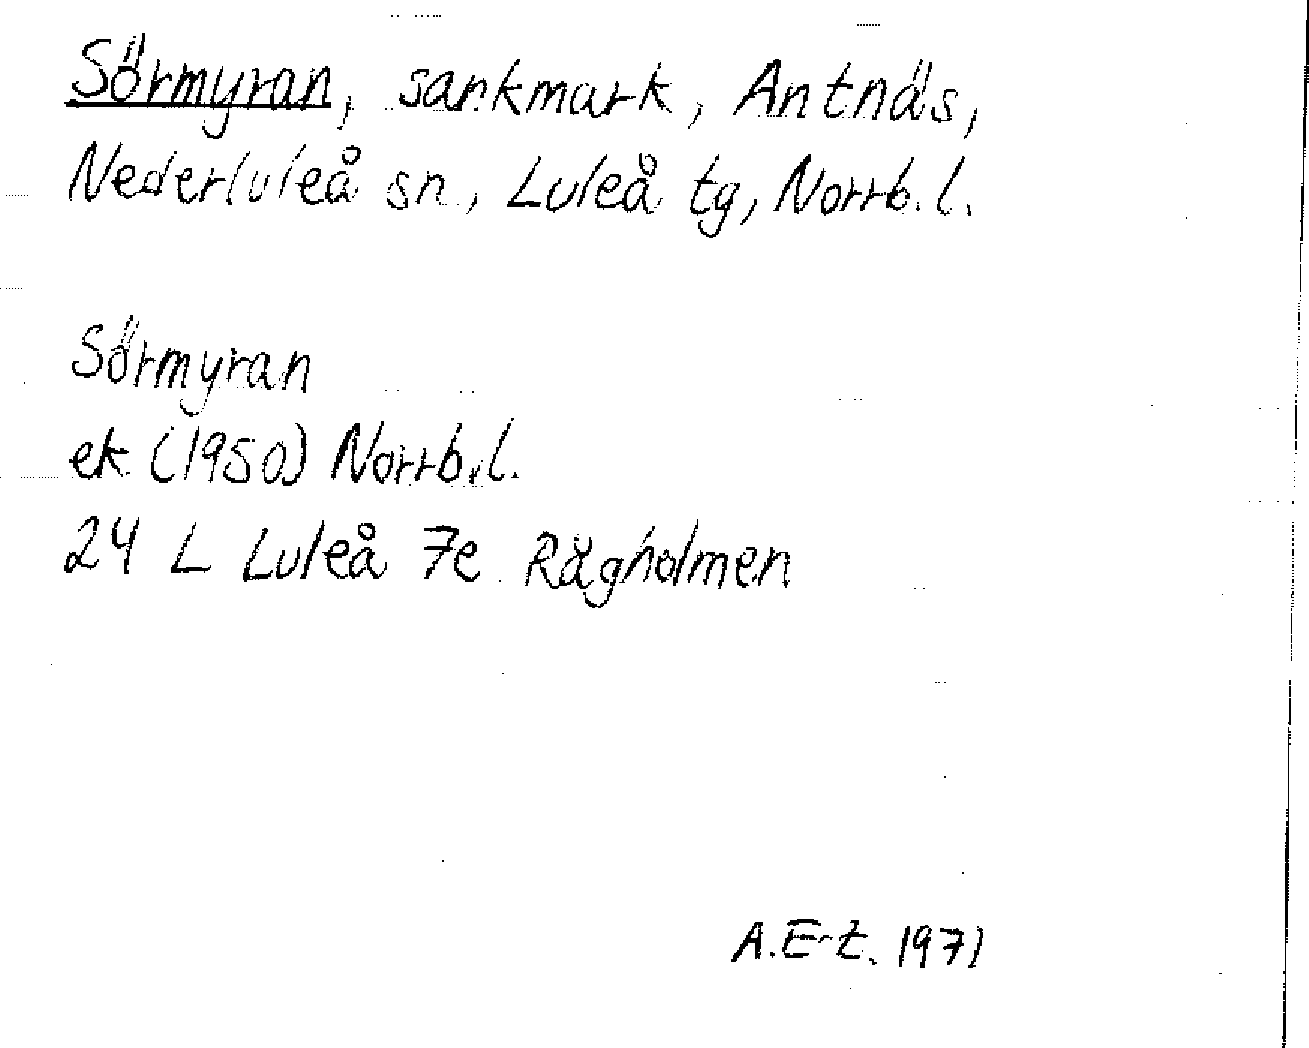 Sörmyran, sankmark, Antnäs,
Nederluleå sn., Luleå tg, Norrb. l.
Sörmyran
ek (1950) Norrb.l.
24 L Luleå 7e Rågholmen
A.E-t. 1971